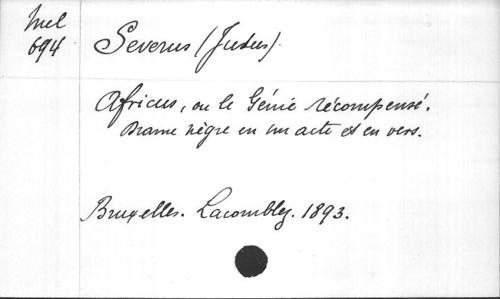 Mel
694
Severus (Judus).
Africus, ou le Génie récompensé.
Drame nègre en un acte et en vers.
Bruxelles. Lacomblez. 1893.